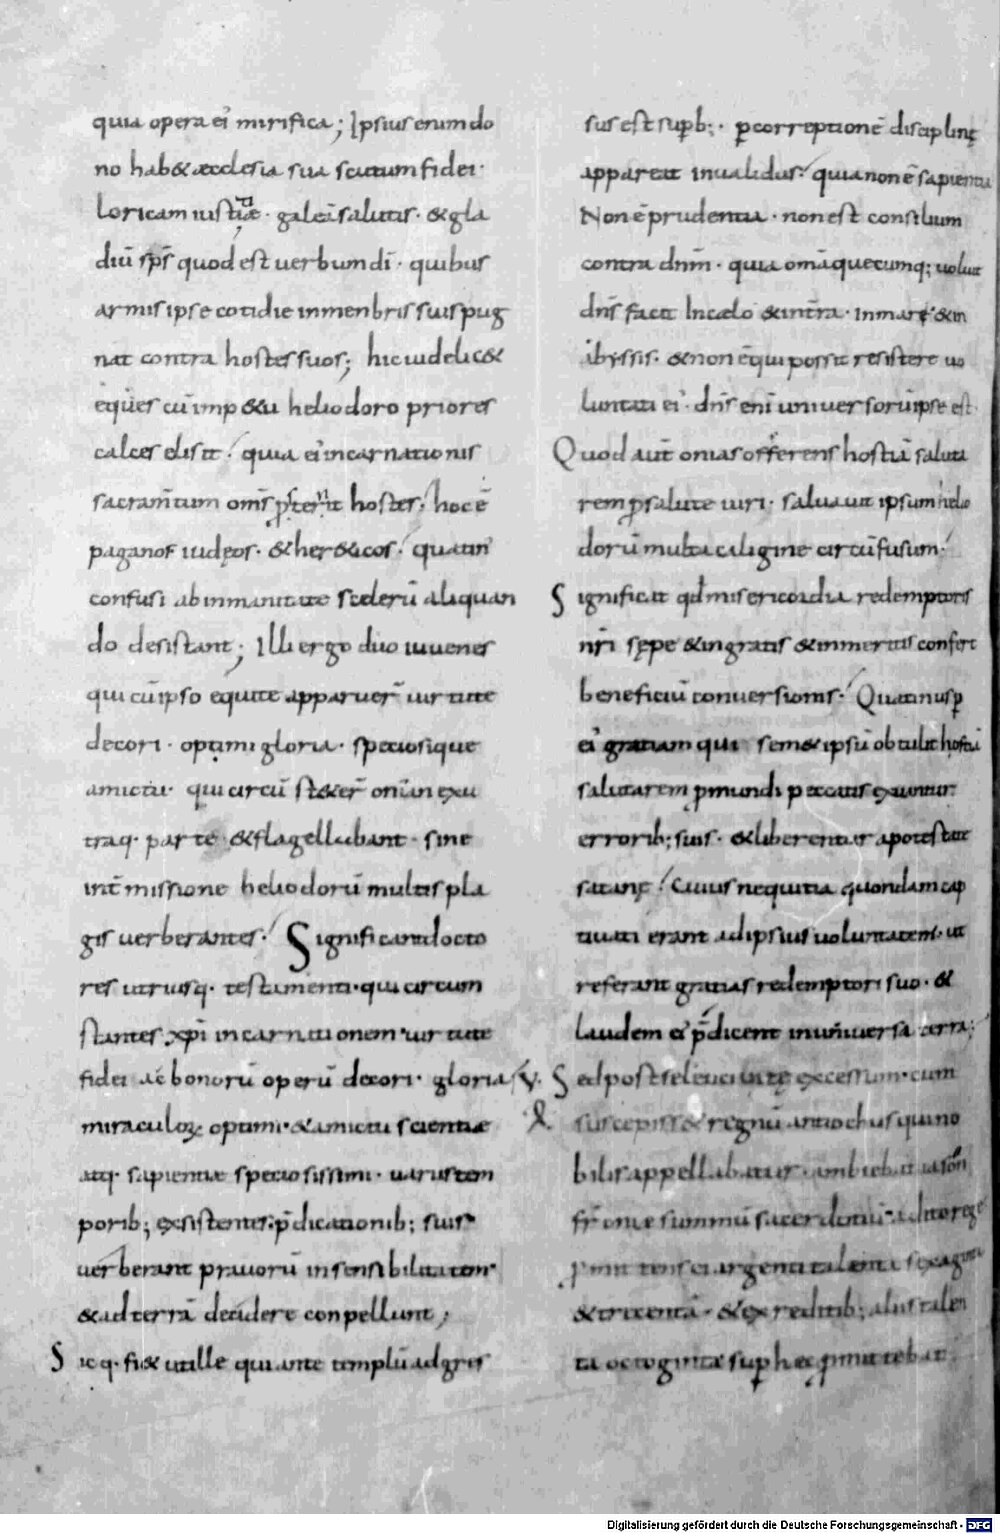 quia opera ei' mirifica; Ipsius enim do
no hab& æcclesia sua scutum fidei·
loricam iustitiæ· galeā salutis· & gla
diū sp̄s quod est uerbum dī· quibus
armis ipse cotidie inmenbris suis pug
nat contra hostes suos; hic uidelic&
eques cū imp&u heliodoro priores
calces elisit· quia ei' incarnationis
sacram̄tum om̄s p̄sternit hostes· hoc ē
paganos iudęos· & her&icos· quatin'
confusi ab inmanitate scelerū aliquan
do desistant; Illi ergo duo iuuenes
qui cū ipso equite apparuer̄ uirtute
decori· optimi gloria· speciosique
amictu· qui circū st&er̄ onī in exu
traq· parte & flagellabant· sine
int̄missione heliodorū multis pla
gis uerberantes· Significant docto
res utriusq· testamenti· qui circum
stantes xp̄i incarnationem· uirtute
fidei ac bonorū operū decori· gloria
miraculoꝝ optimi· & amictu scientiæ
atq· sapientiæ speciosissimi· uariis tem
porib; exsistentes p̄dicationib; suis
uerberant prauorū insensibilitatem·
& ad terrā decidere conpellunt;
Sicq· fi& ut ille qui ante templū adgres
sus est sup̄b;· p̱ correptionē disciplinę
appareat inualidus· quia non ē sapientia
Non ē prudentia· non est consilium
contra dn̄m· quia om̄a quecumq; uoluit
dn̄s fecit In cælo & in t̄ra· In mare & in
abyssis· & non ē qui possit resistere uo
luntati ei'· dn̄s enī uniuersorū ipse est·
Quod aūt onias offerens hostiā saluta
rem p̱ salute uiri· saluauit ipsum helio
dorū multa caligine circūfusum·
Significat qđ misericordia redemptoris
nr̄i sępe & ingratis & inmeritis confert
beneficiū conuersionis· Quatinus p̱
ei' gratiam qui sem&ipsū obtulit hostiā
salutarem p̱ mundi peccatis exuantur
errorib; suis· & liberentur a potestate
satanę· Cuius nequitia quondam cap
tiuati erant ad ipsius uoluntatem· ut
referant gratias redemptori suo· &
laudem ei' p̄dicent in uniuersa terra;
Sed post seleuci uitę excessum· cum
suscepiss& regnū antiochus qui no
bilis appellabatur· ambiebat iason
fr̄ oniæ summū sacerdotiū· adito rege
p̱mittens ei argenti talenta sexaginta
& trecenta· & ex reditib; aliis talen
ta octoginta sup̱ hec p̱mittebat